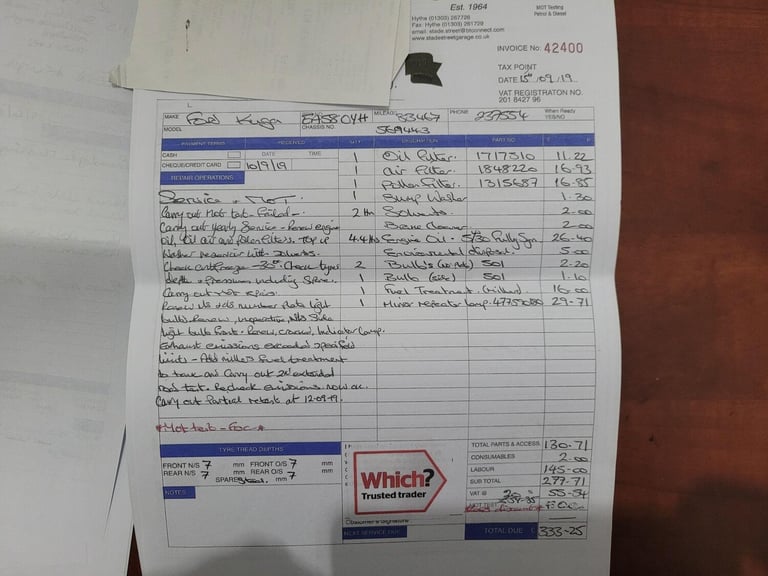 Est. 1964
MOT Testing
Petrol & Diesel
Hythe (01303) 267726
Fax: Hythe (01303) 261729
email: stade.street@btconnect.com
www.stadestreetgarage.co.uk
INVOICE No: 42400
TAX POINT
DATE 15th 09/19
VAT REGISTRATON NO.
201 8427 96
MAKE Ford Kuga EA58OYH MILEAGE 53467 PHONE 237554 When Ready
YES/NO
MODEL CHASSIS NO. 569443
PAYMENT TERMS RECEIVED QTY DESCRIPTION PART NO. £
CASH DATE TIME
CHEQUE/CREDIT CARD 10/9/19
REPAIR OPERATIONS
1 Oil Filter. 1717510 11.22
1 Air Filter. 1848220 16-93
1 Pollen Filter. 1315687 16-85
1 Sump Washer 1.30
2 Solvents 2-00
Cleaner 2-00
4.4 Engine Oil - 5/30 Fully Syn. 26-40
Environmental disposal. 5.00
2 Bulb's 501 2-20
1 Bulb (side) 501 1.10
1 Fuel Treatment. (Millers) 16.00
1 Mirror repeater lamp. 29-71
Service + MOT
Carry out Mot test - Failed -
Carry out yearly Service - Renew engine
oil, oil air and pollen filters. Top up
washer reservoir with solvents.
Check antifreeze -35° Check tyres
depth + pressures including Spare.
Carry out Mot repairs.
Renew N/s + o/s number plate light
bulbs Renew, inoperative, N/s Side
light bulb front - Renew, cracked, Indicator lamp.
Exhaust emissions exceeded specified
limits - Add millers Fuel treatment
to tank and Carry out extended
road test. Recheck emissions now ok.
Carry out Partial retest at 12-09-19.
*Mot test - FOC *
TYRE TREAD DEPTHS
FRONT N/S 7 mm FRONT O/S 7 mm
REAR N/S 7 mm REAR O/S 7 mm
SPARE mm
NOTES
Which?
Trusted trader
Customer's Signature
NEXT SERVICE DUE
TOTAL PARTS & ACCESS. 130-71
CONSUMABLES 2.00
LABOUR 145-00
SUB TOTAL 277-71
VAT @ 20 55-54
MOT TEST F.O.C.
TOTAL DUE £ 333-25